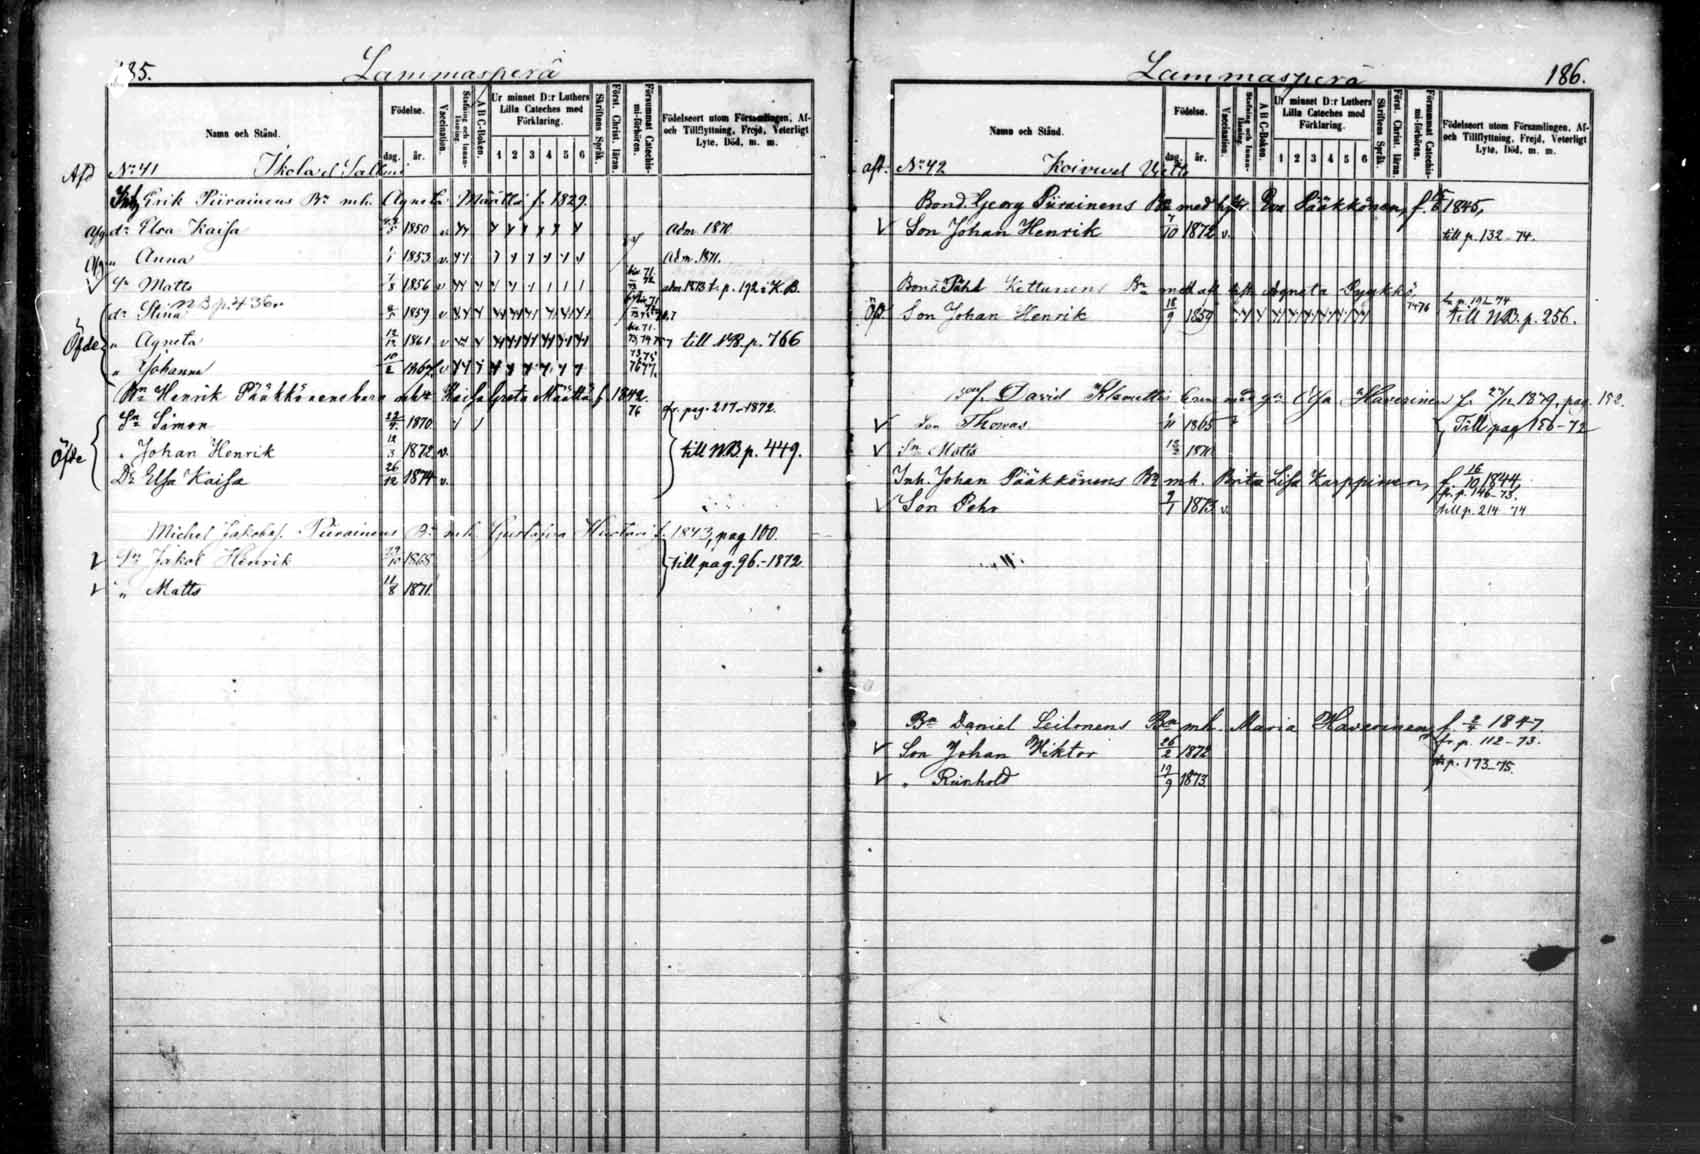 185.
Lammasperä
Namn och Stånd.
Födelse.
dag. år.
Vaccination.
Stafning och Innanläsning.
A B C-Boken.
Ur minnet D:r Luthers Lilla Cateches med Förklaring.
1 2 3 4 5 6
Skriftens Språk.
Först. Christ. läran.
Försummat Catechismi-förhören.
Födelseort utom Församlingen, Af- och Tillflyttning, Frejd, Veterligt Lyte, Död, m. m.
Afd No 41
Erik Piirainens Bn mh. Agneta Määttä f. 1829.
dr Elsa Kaisa 1850 v adm 1870
" Anna 1/1 1853 v. adm. 1871.
Sn Matts 7/8 1856 v
dr Stina NB p. 436 1859 v
Öfde
" Agneta 12/12 1861 v till NB p. 766
" Johanna
Bn Henrik Pääkkönens Kaisa Greta Määttä f. 1842.
fr. pag. 217-1872.
Sn Simon 1870
Öfde
" Johan Henrik 12/3 1872 v. till NB p. 449.
Dr Elsa Kaisa 26/12 1874 v.
Michel Jakobs. Piirainens Bn mh Gustafva Huotari f. 1843, pag 100.
Sn Jakob Henrik 1868 till pag. 96.-1872
" Matts 11/8 1871.
186.
Lammasperä
Namn och Stånd.
Födelse.
dag. år.
Vaccination.
Stafning och Innanläsning.
A B C-Boken.
Ur minnet D:r Luthers Lilla Cateches med Förklaring.
1 2 3 4 5 6
Skriftens Språk.
Först. Christ. läran.
Försummat Catechismi-förhören.
Födelseort utom Församlingen, Af- och Tillflyttning, Frejd, Veterligt Lyte, Död, m. m.
No 42
Bond. Georg Piirainens Bn med hustr. Eva Pääkkönen, f. 1845,
Son Johan Henrik 7/10 1872 v. till p. 132-74.
Bond. Påhl Kettunens Bn med Agneta
Son Johan Henrik 18/9 1859 till NB. p. 256.
David Elsa Haverinen f. 1849, pag. 152.
Son Thomas 1/11 1865 Till pag 156-72
Sn Matts
Inh. Johan Pääkkönens Bn mh. Brita Lisa Karppinen, f. 16/10 1844,
fr. p. 146-73.
Son Pehr 1873 v till p. 214-74
Bn Daniel Leinonens Bn mh. Maria Haverinen, f. 1847
fr. p. 112-73.
Son Johan Wiktor 26/2 1872
p. 173-75.
" Reinhold 19/9 1873